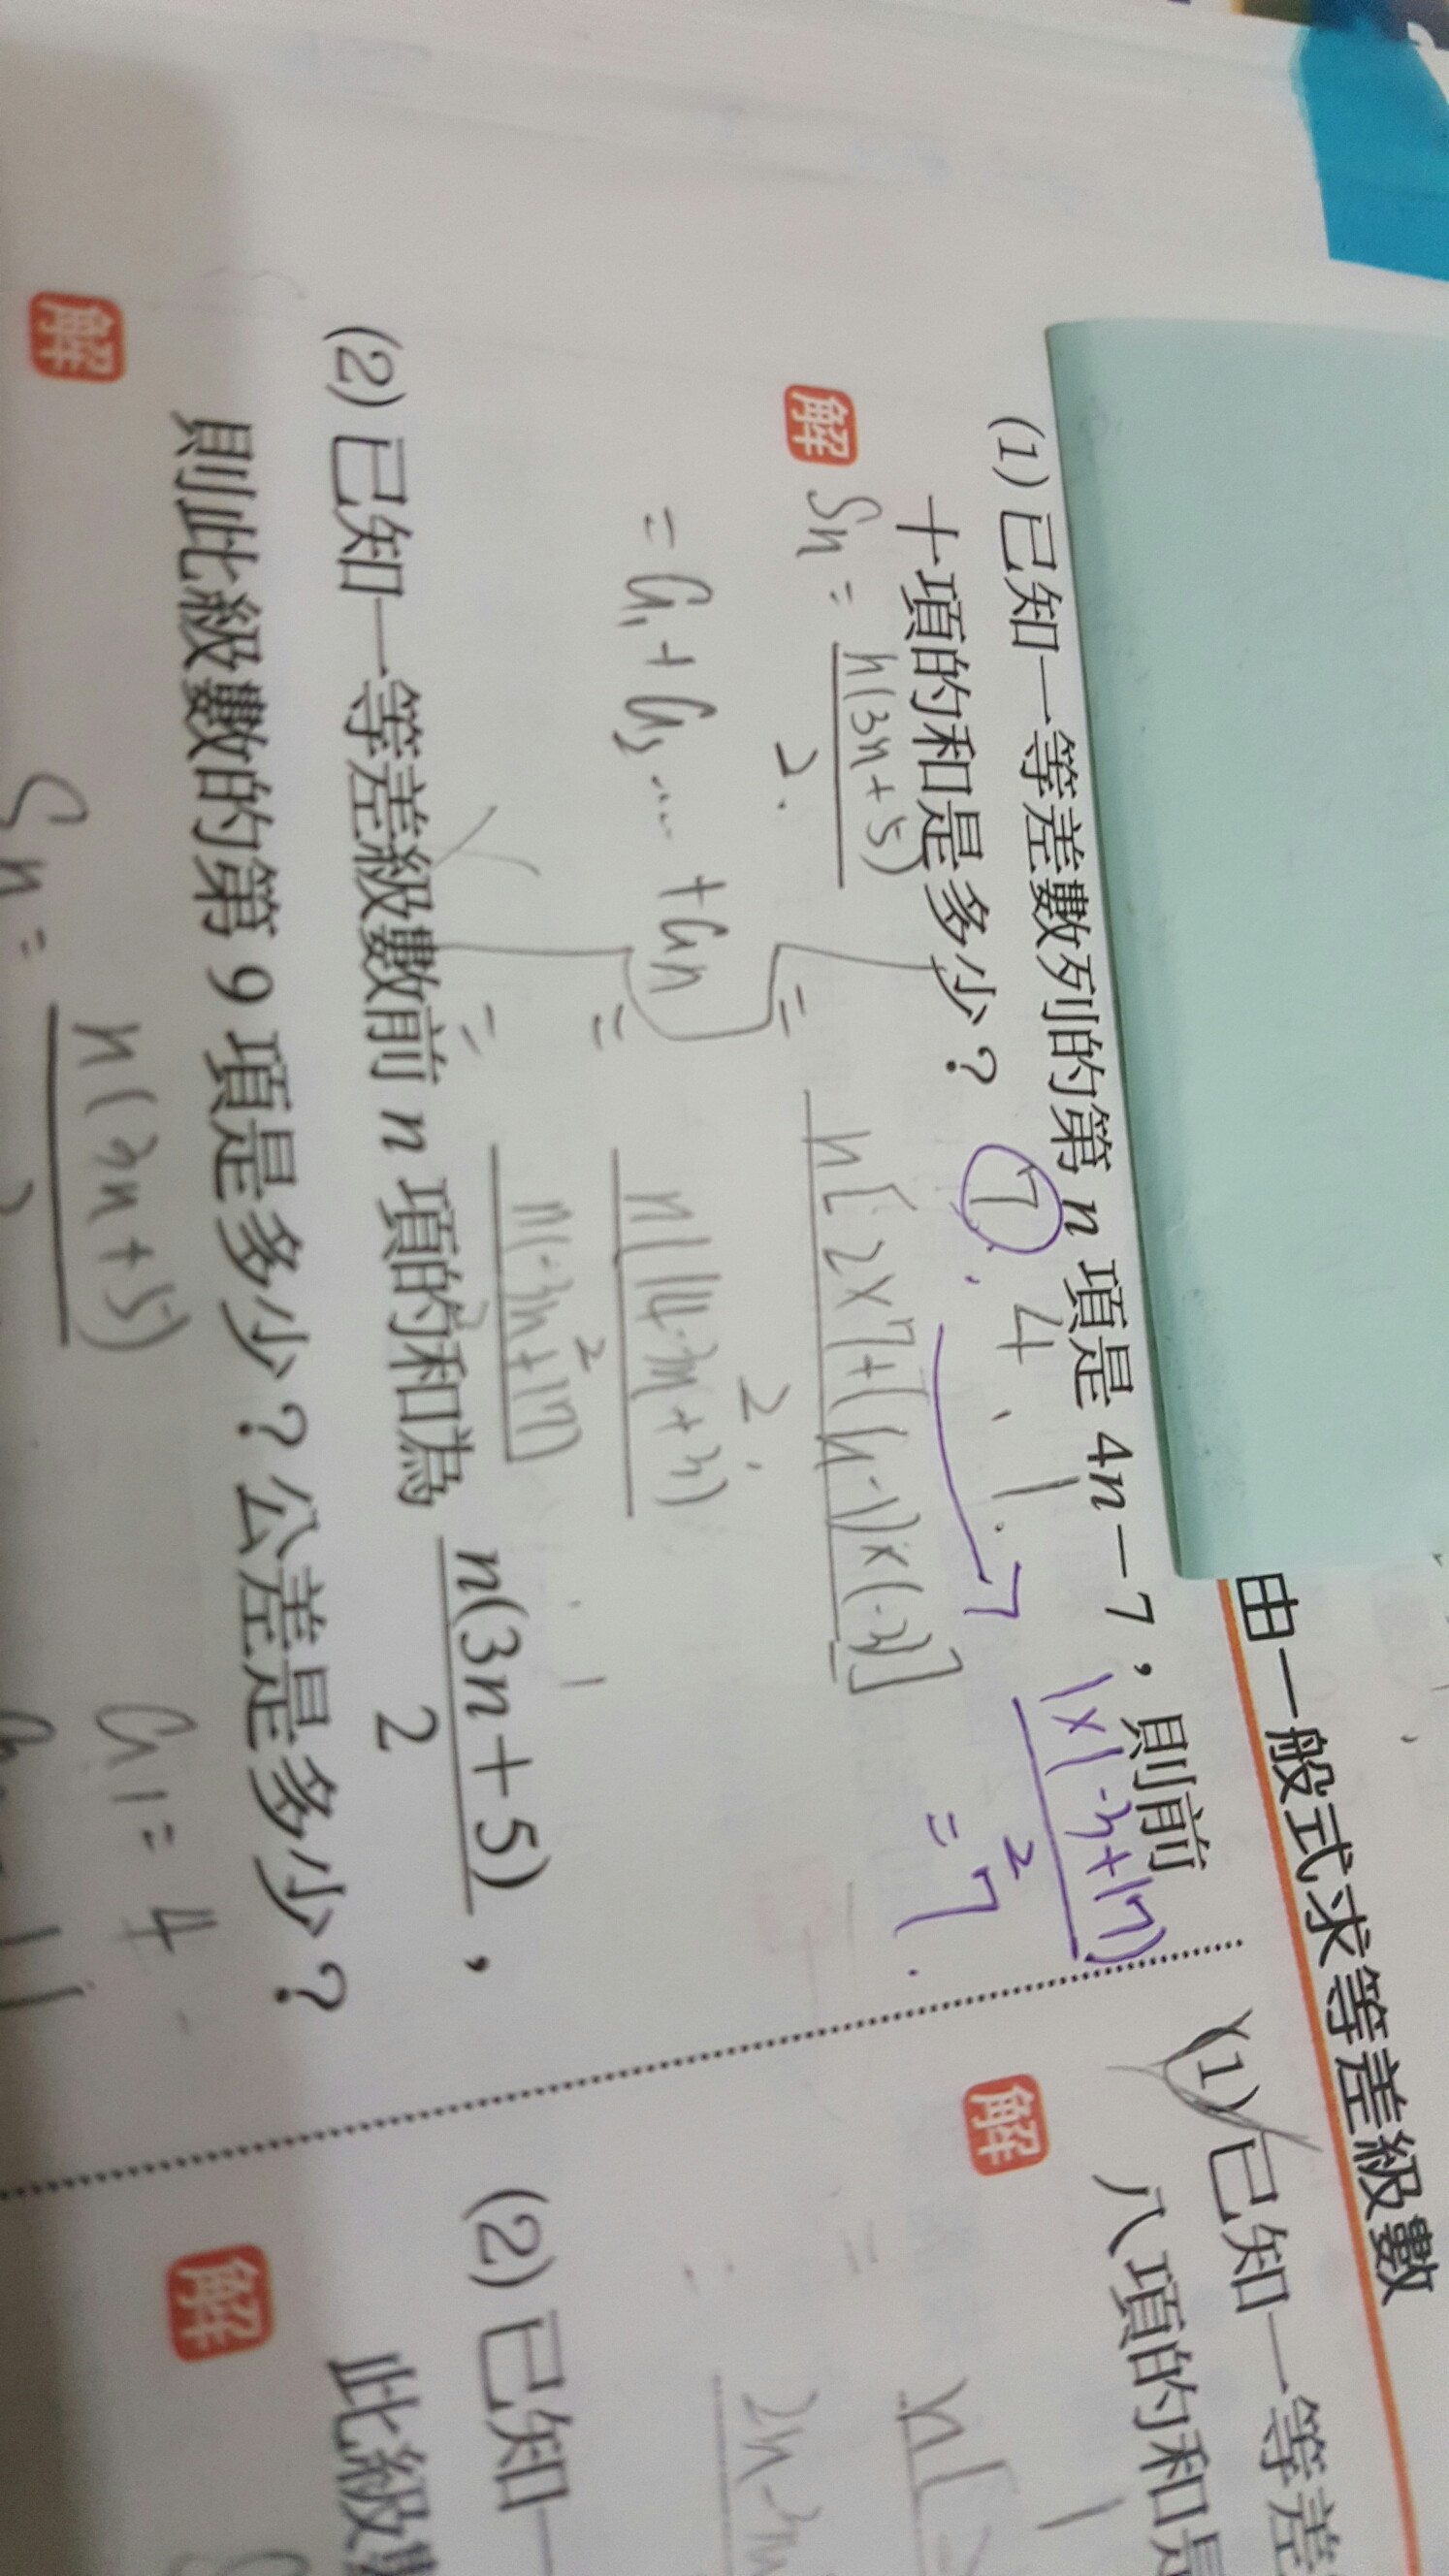 由一般式求等差級數
(1) 已知一等差數列的第 n 項是 4n－7，則前
十項的和是多少？
7, 4, 1, 7
1×(-3+17)
2
= 7.
解
Sn = n(3n+5)
2.
= n[2×7+(n-1)×(-3)]
2.
= a₁+a₂...+an
= n(14-3n+3)
2
= n(-3n+17)
2
(2) 已知一等差級數前 n 項的和為 n(3n＋5)
2
，
則此級數的第 9 項是多少？公差是多少？
解
Sn = n(3n+5)
2
a₁ = 4
(1) 已知一等差
八項的和是
解
n[
2n-3n
(2) 已知一
此級數
解